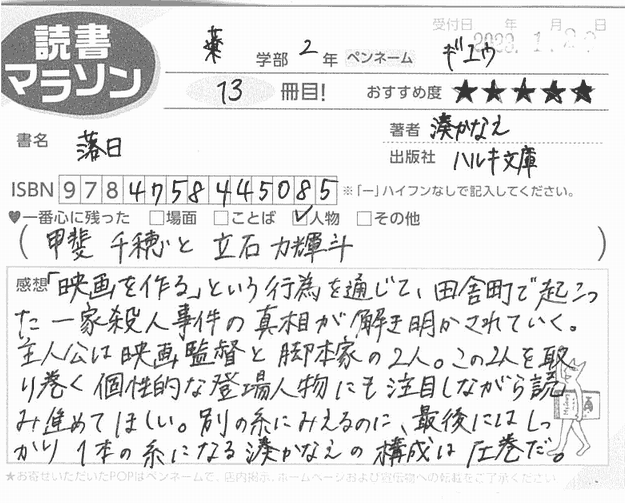 読書
マラソン
受付日 年 月 日
2023. 1. 23
薬 学部 2 年 ペンネーム ギユウ
13 冊目! おすすめ度 ★★★★★
書名 落日
著者 湊かなえ
出版社 ハルキ文庫
ISBN 9784758445085 ※「ー」ハイフンなしで記入してください。
♥一番心に残った □場面 □ことば ☑人物 □その他
(甲斐 千穂と立石 力輝斗)
感想「映画を作る」という行為を通じて、田舎町で起こっ
た一家殺人事件の真相が解き明かされていく。
主人公は映画監督と脚本家の2人。この2人を取
り巻く個性的な登場人物にも注目しながら読
み進めてほしい。別の糸にみえるのに、最後にはしっ
かり1本の糸になる湊かなえの構成は圧巻だ。
★お寄せいただいたPOPはペンネームで、店内掲示、ホームページおよび宣伝物への転載をご了承ください